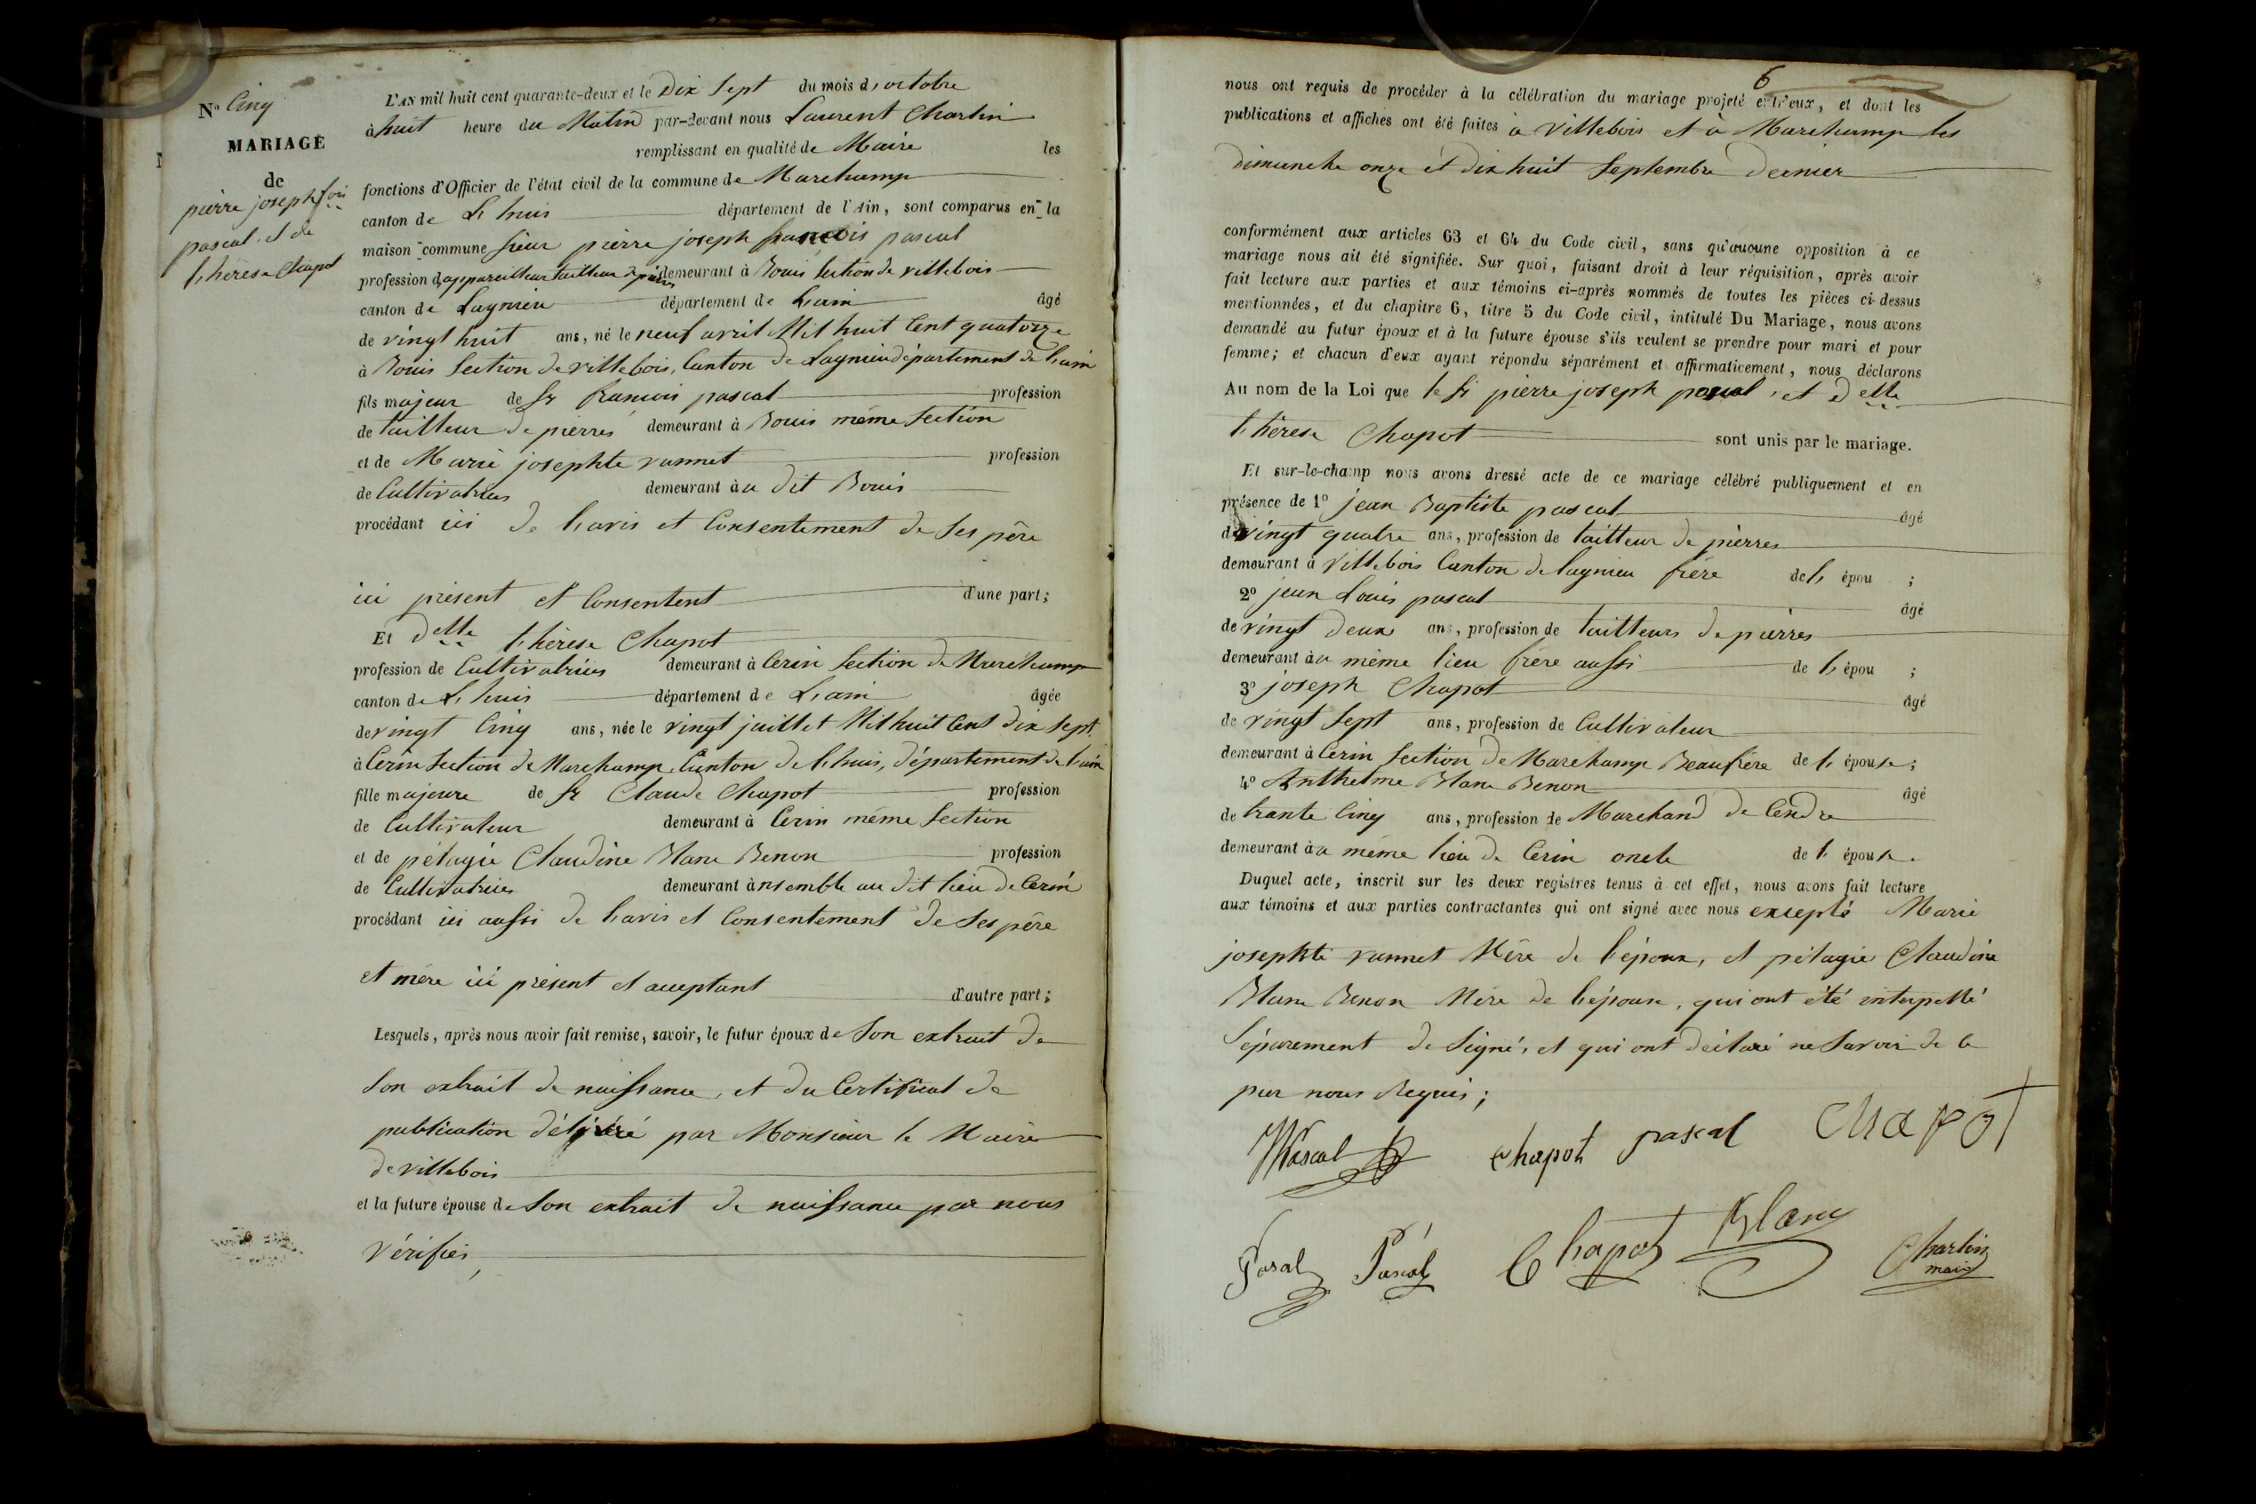 N° Cinq
MARIAGE
de
pierre joseph fois
pascal et de
thérèse Chapot
L'AN mil huit cent quarante-deux et le Dix Sept du mois d'octobre
à huit heure du Matin par-devant nous Laurent Charlin
remplissant en qualité de Maire les
fonctions d'Officier de l'état civil de la commune de Marchamp
canton de L'huis département de l'Ain, sont comparus en la
maison commune sieur pierre joseph francois pascal
profession d'appareilleur tailleur de pierres demeurant à Bouis Section de villebois
canton de Lagnieu département de L'ain âgé
de vingt huit ans, né le neuf avril Mil huit Cent quatorze
à Bouis Section de villebois, Canton de Lagnieu département de L'ain
fils majeur de Sr francois pascal profession
de tailleur de pierres demeurant à Bouis même Section
et de Marie josephte vannet profession
de Cultivatrice demeurant àu dit Bouis
procédant ici de l'avis et Consentement de Ses père
ici présent et Consentent d'une part;
Et delle thérèse Chapot
profession de Cultivatrice demeurant à Cerin Section de Marchamp
canton de L'huis département de L'ain âgée
de vingt Cinq ans, née le vingt juillet Mil huit Cent dix Sept
à Cerin Section de Marchamp Canton de L'huis, département de L'ain
fille majeure de Sr Claude Chapot profession
de Cultivateur demeurant à Cerin même Section
et de pélagie Claudine Blanc Benon profession
de Cultivatrice demeurant ànsemble au dit lieu de Cerin
procédant ici aussi de l'avis et Consentement de Ses père
et mère ici présent et aceptant d'autre part;
Lesquels, après nous avoir fait remise, savoir, le futur époux de Son extrait de
Son extrait de naissance, et du Certificat de
publication délivré par Monsieur le Maire
de villebois
et la future épouse de Son extrait de naissance par nous
vérifiés,
6
nous ont requis de procéder à la célébration du mariage projeté entr'eux, et dont les
publications et affiches ont été faites à villebois et à Marchamp les
dimanche onze et dix huit Septembre Dernier
conformément aux articles 63 et 64 du Code civil, sans qu'aucune opposition à ce
mariage nous ait été signifiée. Sur quoi, faisant droit à leur réquisition, après avoir
fait lecture aux parties et aux témoins ci-après nommés de toutes les pièces ci-dessus
mentionnées, et du chapitre 6, titre 5 du Code civil, intitulé Du Mariage, nous avons
demandé au futur époux et à la future épouse s'ils veulent se prendre pour mari et pour
femme; et chacun d'eux ayant répondu séparément et affirmativement, nous déclarons
Au nom de la Loi que le Sr pierre joseph pascal, et delle
thérèse Chapot sont unis par le mariage.
Et sur-le-champ nous avons dressé acte de ce mariage célébré publiquement et en
présence de 1° jean Baptiste pascal âgé
de vingt quatre ans, profession de tailleur de pierres
demeurant à Villebois Canton de lagnieu frère de l' épou ;
2° jean Louis pascal âgé
de vingt deux ans, profession de tailleurs de pierres
demeurant àu même lieu frère aussi de l' épou ;
3° joseph Chapot âgé
de vingt Sept ans, profession de Cultivateur
demeurant à Cerin Section de Marchamp Beaufrère de l' épouse;
4° Anthelme Blanc Benon âgé
de trante Cinq ans, profession de Marchand de Cendre
demeurant àu même lieu de Cerin oncle de l' épouse.
Duquel acte, inscrit sur les deux registres tenus à cet effet, nous avons fait lecture
aux témoins et aux parties contractantes qui ont signé avec nous excepté Marie
josephte vannet Mère de l'époux, et pélagie Claudine
Blanc Benon Mère de l'épouse, qui ont été interpellé
Séparement de Signé, et qui ont déclaré ne Savoir de ce
par nous Requis;
Pascal chapot pascal Chapot
Pascal Pascal Chapot Blanc Charlin
maire